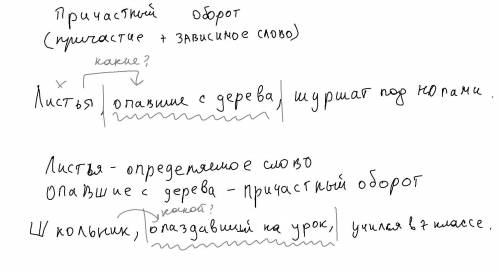 Причастный оборот
(причастие + зависимое слово)
какие?
х
Листья, опавшие с дерева, шуршат под ногами.
Листья - определяемое слово
опавшие с дерева - причастный оборот
какой?
Школьник, опаздавший на урок, учился в 7 классе.